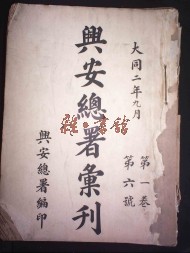 大同二年九月
第一卷
第六號
興安總署彙刊
興安總署編印